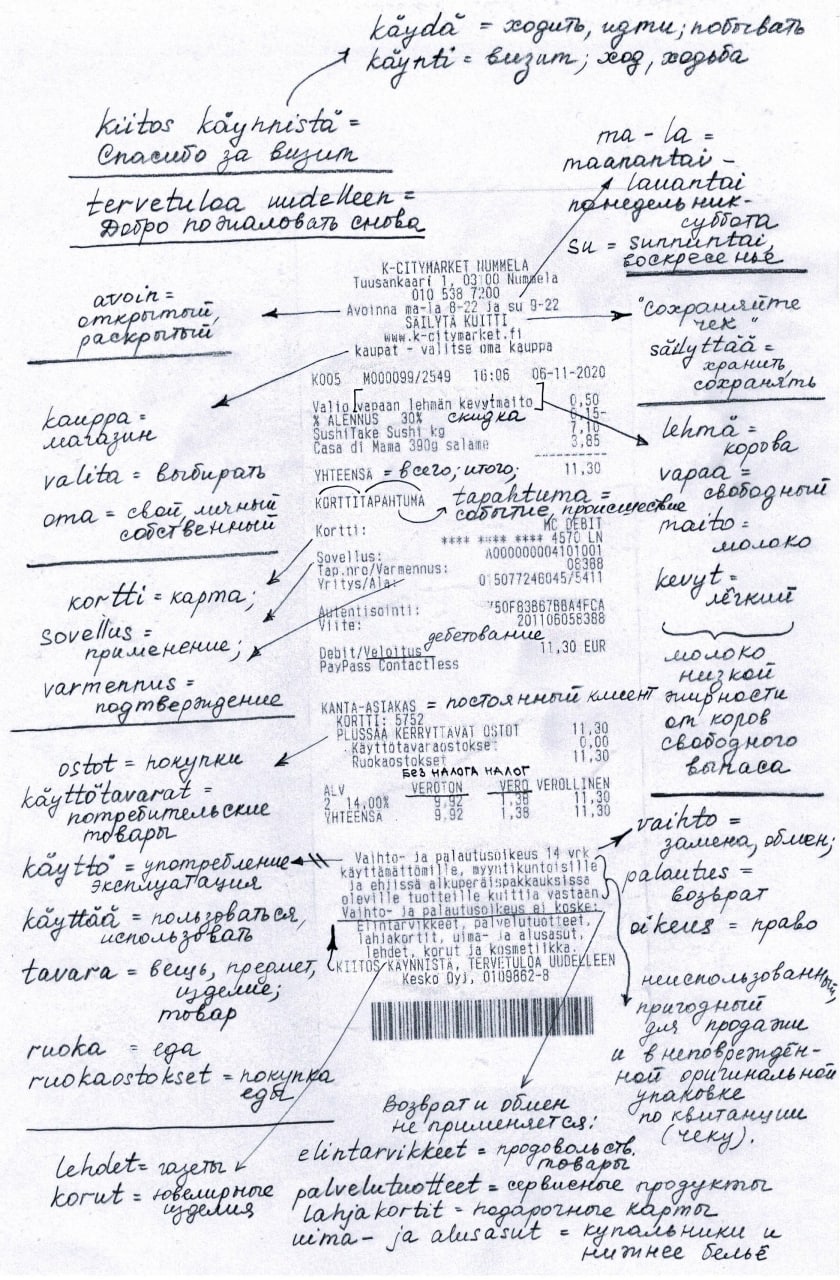 käydä = ходить, идти; побывать
käynti = визит; ход, ходьба
kiitos käynnistä =
Спасибо за визит
tervetuloa uudelleen =
Добро пожаловать снова
ma - la =
maanantai -
lauantai
понедельник-
суббота
su = sunnuntai,
воскресенье
avoin =
открытый,
раскрытый
kauppa =
магазин
valita = выбирать
oma = свой, личный
собственный
kortti = карта;
sovellus =
применение;
varmennus =
подтверждение
ostot = покупки
käyttötavarat =
потребительские
товары
käyttö = употребление
эксплуатация
käyttää = пользоваться,
использовать
tavara = вещь, предмет,
изделие;
товар
ruoka = еда
ruokaostokset = покупка
еды
lehdet = газеты
korut = ювелирные
изделия
K-CITYMARKET NUMMELA
Tuusankaari 1, 03100 Nummela
010 538 7200
Avoinna ma-la 8-22 ja su 9-22
SÄILYTÄ KUITTI
www.k-citymarket.fi
kaupat - valitse oma kauppa
K005 M000099/2549 16:06 06-11-2020
Valio vapaan lehmän kevytmaito 0,50
% ALENNUS 30% скидка 0,15-
SushiTake Sushi kg 7,10
Casa di Mama 390g salame 3,85
----------
YHTEENSÄ = всего; итого; 11,30
KORTTITAPAHTUMA tapahtuma =
событие, происшествие
MC DEBIT
Kortti: **** **** **** 4570 LN
Sovellus: A000000004101001
Tap.nro/Varmennus: 08388
Yritys/Ala: 015077246045/5411
Autentisointi: 50F83B67BBA4FCA
Viite: 201106058388
дебетование
Debit/Veloitus 11,30 EUR
PayPass Contactless
KANTA-ASIAKAS = постоянный клиент
KORTTI: 5752
PLUSSAA KERRYTTÄVÄT OSTOT 11,30
Käyttötavaraostokset 0,00
Ruokaostokset 11,30
БЕЗ НАЛОГА НАЛОГ
ALV VEROTON VERO VEROLLINEN
2 14,00% 9,92 1,38 11,30
YHTEENSÄ 9,92 1,38 11,30
Vaihto- ja palautusoikeus 14 vrk
käyttämättömille, myyntikuntoisille
ja ehjissä alkuperäispakkauksissa
oleville tuotteille kuittia vastaan.
Vaihto- ja palautusoikeus ei koske:
Elintarvikkeet, palvelutuotteet,
lahjakortit, uima- ja alusasut,
lehdet, korut ja kosmetiikka.
KIITOS KÄYNNISTÄ, TERVETULOA UUDELLEEN
Kesko Oyj, 0109862-8
"Сохраняйте
чек"
säilyttää =
хранить,
сохранять
lehmä =
корова
vapaa =
свободный
maito =
молоко
kevyt =
лёгкий
молоко
низкой
жирности
от коров
свободного
выпаса
vaihto =
замена, обмен;
palautus =
возврат
oikeus = право
неиспользованный,
пригодный
для продажи
и в неповреждён-
ной оригинальной
упаковке
по квитанции
(чеку).
Возврат и обмен
не применяется:
elintarvikkeet = продовольств.
товары
palvelutuotteet = сервисные продукты
lahjakortit = подарочные карты
uima- ja alusasut = купальники и
нижнее бельё